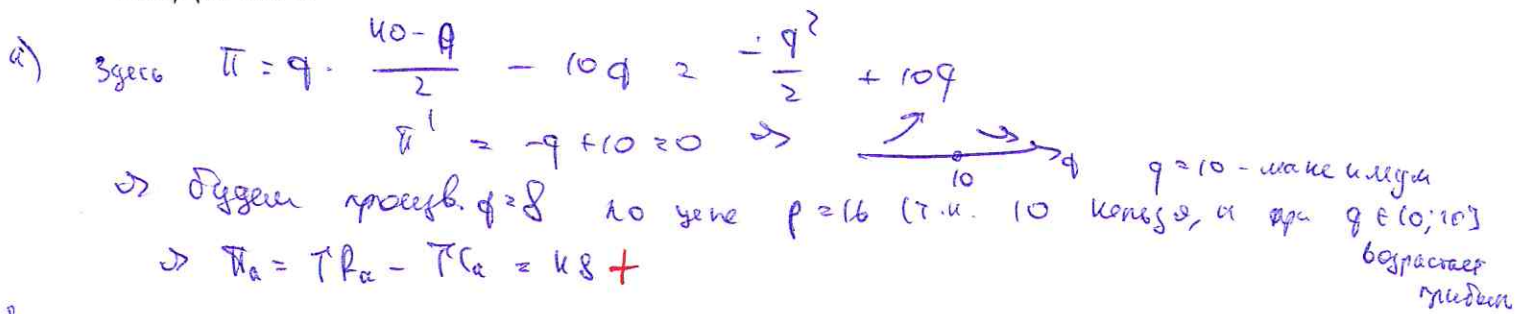 а) Здесь π = q · (40 - q)/2 - 10q = -q²/2 + 10q
π' = -q + 10 = 0 => 10 q q = 10 - максимум
=> будем произв. q = 8 по цене p = 16 (т.к. 10 нельзя, и при q ∈ (0; 10) возрастает прибыль
=> πa = TRa - TCa = 48 +